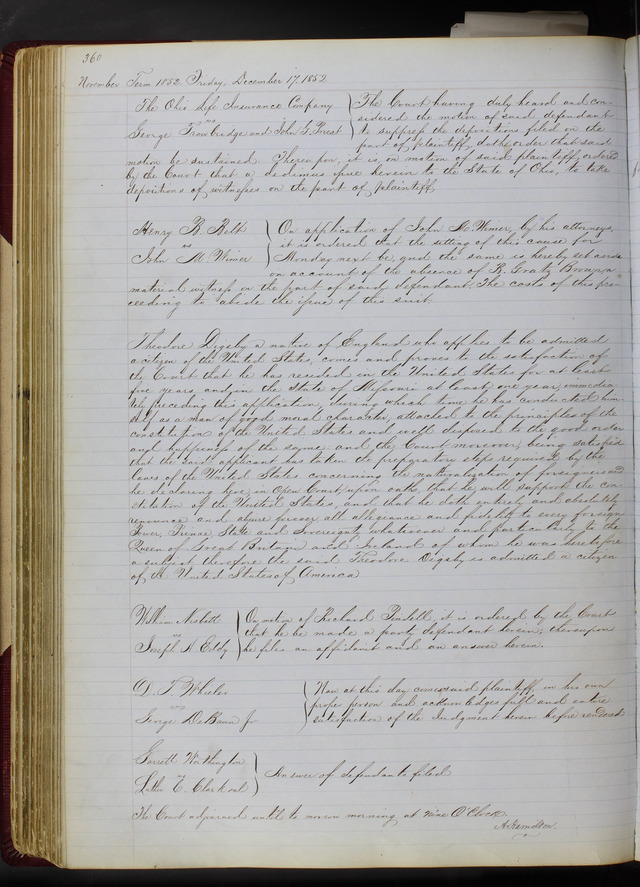 360
November Term 1852 Friday, December 17, 1852
The Ohio Life Insurance Company } The Court having duly heard and con-
vs } sidered the motion of said defendant
George Trowbridge and John G. Priest } to suppress the depositions filed on the
part of plaintiff, doth order that said
motion be sustained. Thereupon, it is, on motion of said plaintiff ordered
by the Court that a dedimus issue herein to the State of Ohio, to take
depositions of witnesses on the part of plaintiff,
Henry R. } On application of John M. Wimer, by his attorneys,
vs } it is ordered that the setting of this cause for
John M. Wimer } Monday next be, and the same is hereby set aside
on account of the absence of B. Gratz Brown a
material witness on the part of said defendant. The costs of this pro-
ceeding to abide the issue of this suit
Theodore Digsby a native of England who applies to be admitted
a citizen of the United States, comes and proves to the satisfaction of
the Court that he has resided in the United States for at least
five years and in the State of Missouri at least one year, immedia-
tely preceding this application, during which time he has conducted him-
self as a man of good moral character attached to the principles of the
constitution of the United States and well disposed to the good order
and happiness of the same; and the Court moreover, being satisfied
that the said applicant has taken the preparatory steps required by the
laws of the United States concerning the naturalization of foreigners and
he declaring here in Open Court upon oath, that he will support the con-
stitution of the United States, and that he doth entirely and absolutely
renounce and abjure forever all allegiance and fidelity to every foreign
Power, Prince State and Sovereignty whatsoever and particularly to the
Queen of Great Britain and Ireland of whom he was heretofore
a subject therefore the said Theodore Digsby is admitted a citizen
of the United States of America
William Nisbett } On motion of Richard it is ordered by the Court
vs } that he be made a party defendant herein; thereupon
Joseph A Eddy } he files an affidavit and an answer herein.
D. P. Wheeler } Now at this day comes said plaintiff, in his own
vs } proper person and acknowledges full and entire
George DeBaun Jr } satisfaction of the Judgment herein before rendered
Garrett Worthington }
} Answer of defendants filed
Luther T. Clark et al }
The Court adjourned until to morrow morning at nine O'Clock
A. Hamilton